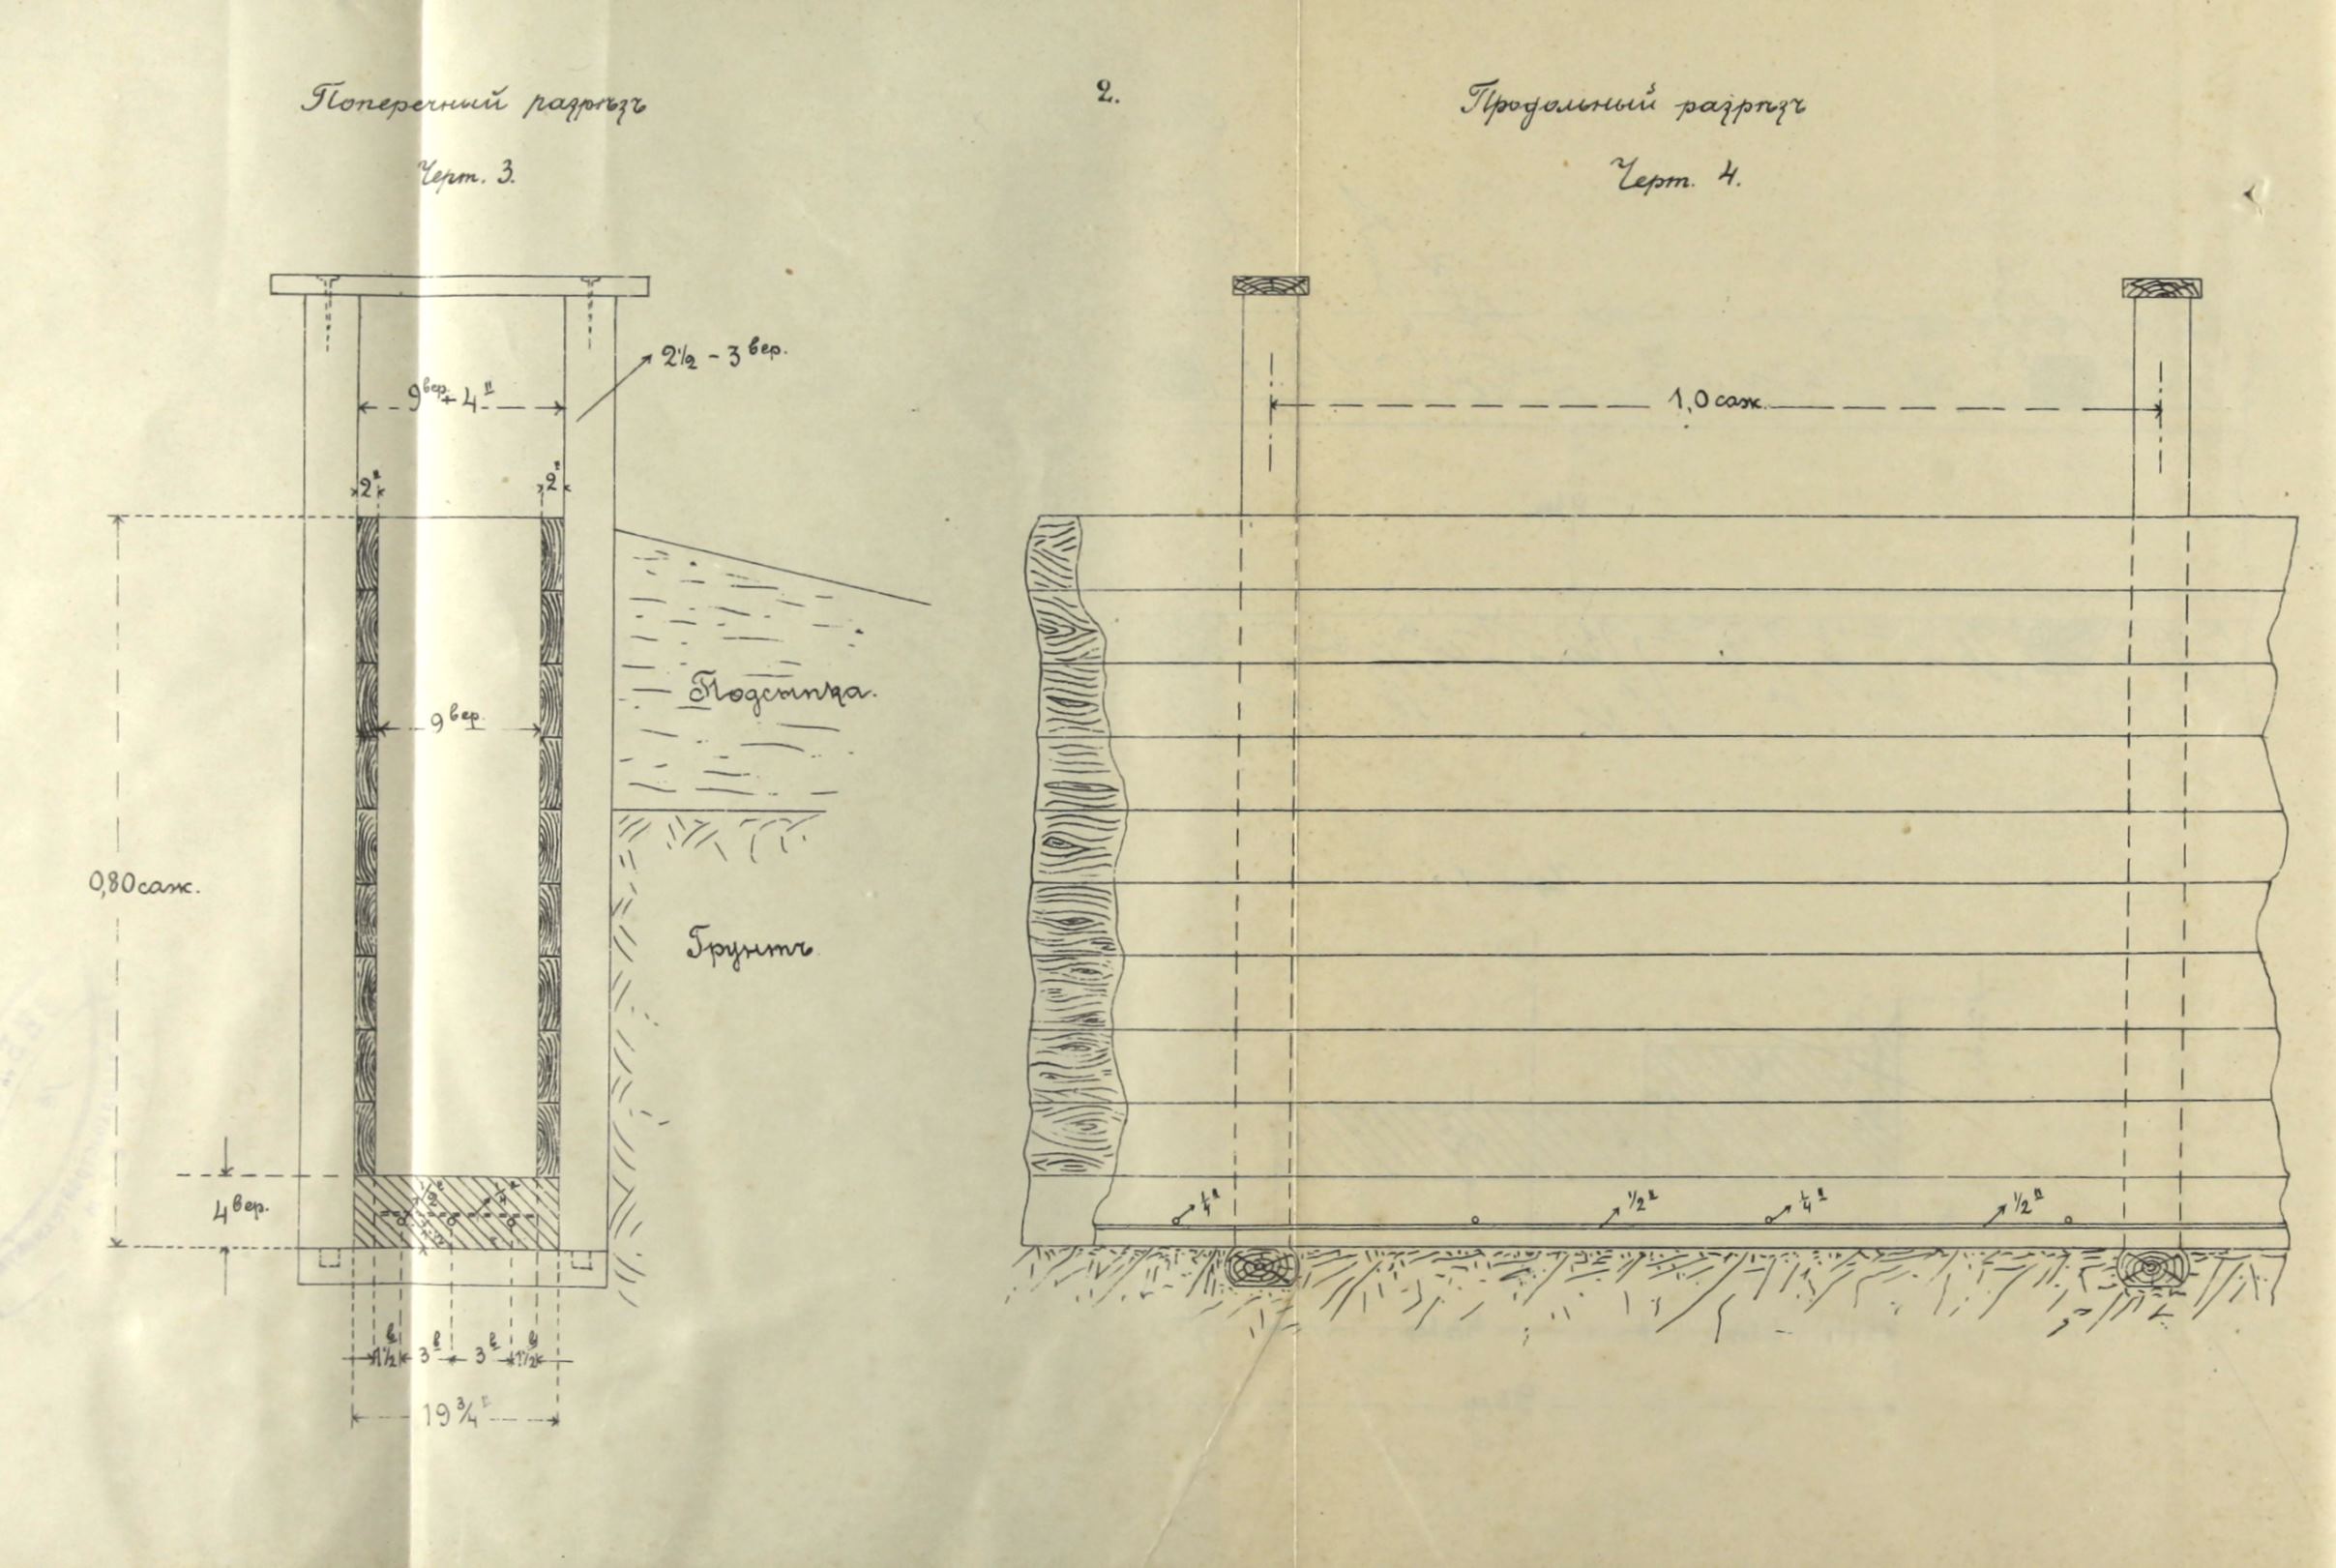 Поперечный разрѣзъ
Черт. 3.
2.
Продольный разрѣзъ
Черт. 4.
2½ - 3 вер.
9 вер. + 4"
2"
2"
1,0 саж.
Подсыпка.
9 вер.
0,80 саж.
Грунтъ
4 вер.
¼"
½"
¼"
½"
1½ в
3 в
3 в
1½ в
19¾"